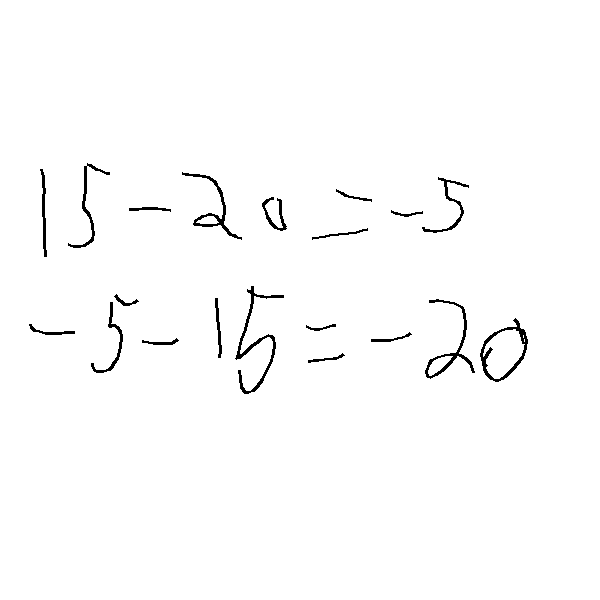 15 - 20 = -5
-5 - 15 = -20